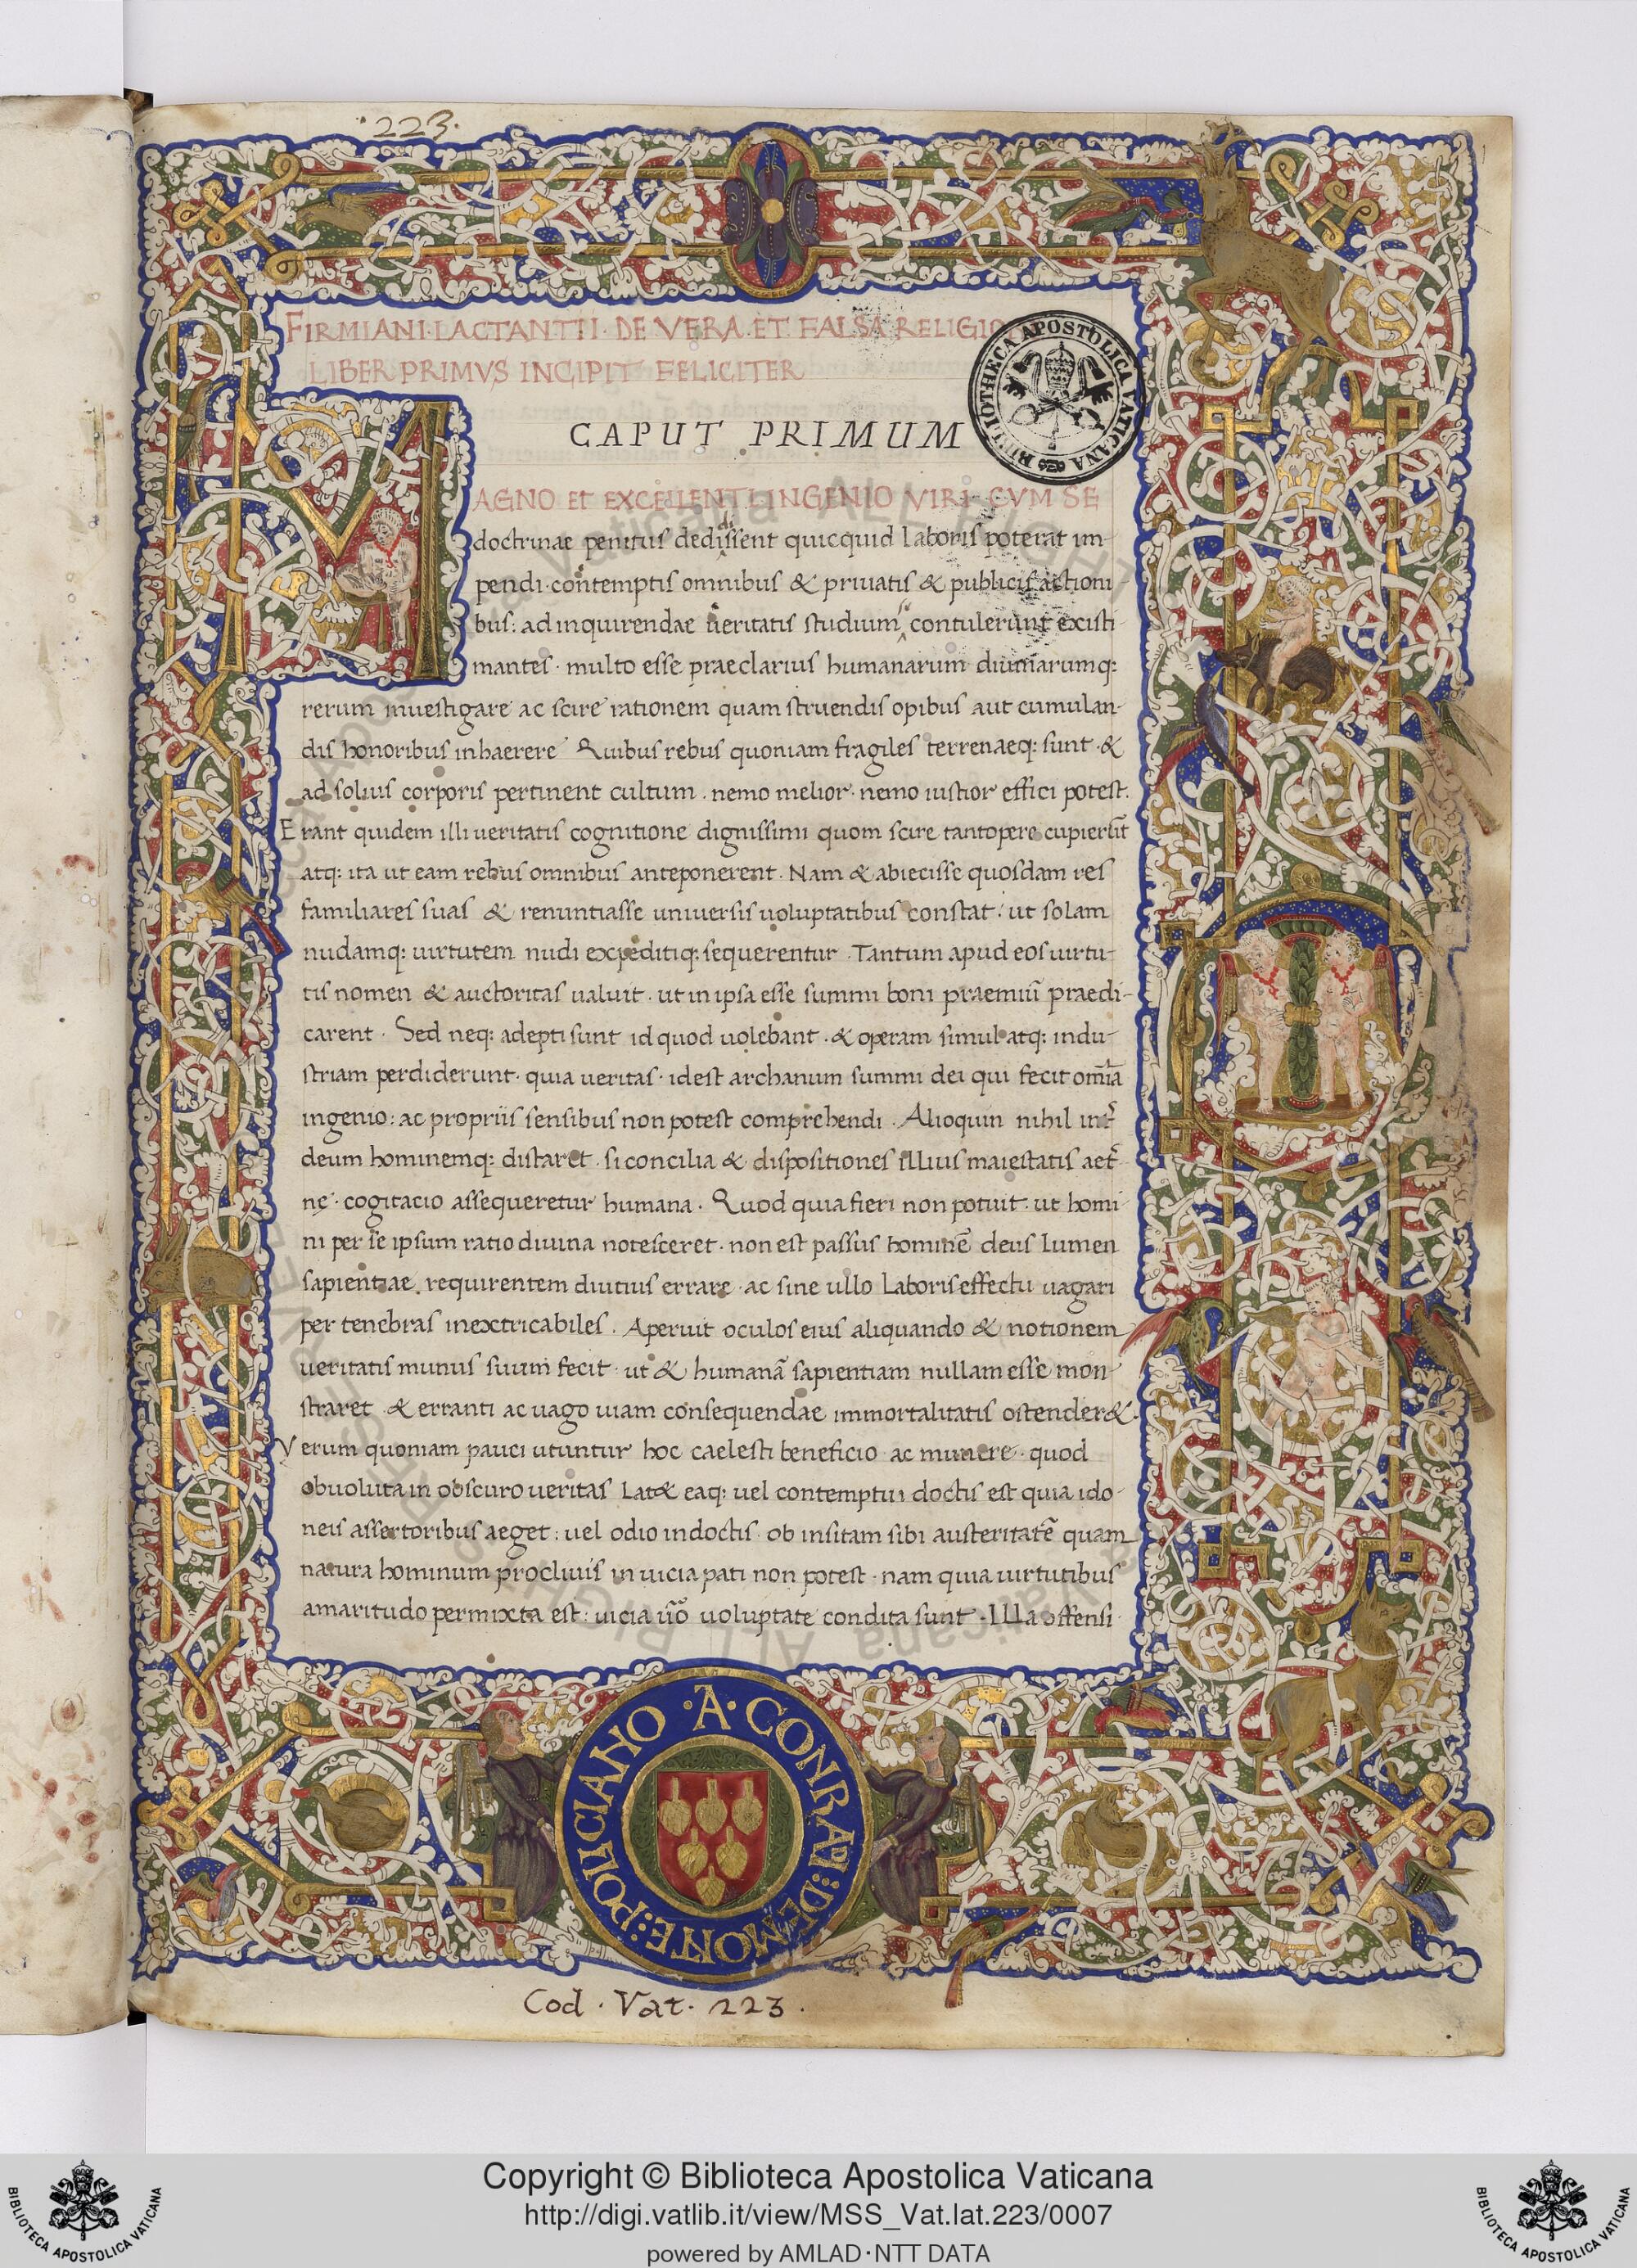 ·223·
1
FIRMIANI·LACTANTII·DE VERA ET FALSA RELIGIO
LIBER PRIMVS INCIPIT FELICITER
CAPUT PRIMUM
BIBLIOTHECA APOSTOLICA VATICANA
MAGNO ET EXCELLENTI INGENIO VIRI· CVM SE
doctrinae penitus dedidissent quicquid laboris poterat im-
pendi·contemptis omnibus & priuatis & publicis actioni-
bus: ad inquirendae ueritatis studium se contulerunt existi-
mantes · multo esse praeclarius humanarum diuinarumq:
rerum inuestigare ac scire rationem quam struendis opibus aut cumulan-
dis honoribus inhaerere Quibus rebus quoniam fragiles terrenaeq: sunt · &
ad solius corporis pertinent cultum . nemo melior · nemo iustior effici potest.
Erant quidem illi ueritatis cognitione dignissimi quom scire tantopere cupierūt
atq: ita ut eam rebus omnibus anteponerent . Nam & abiecisse quosdam res
familiares suas & renuntiasse uniuersis uoluptatibus constat: ut solam
nudamq: uirtutem nudi expeditiq: sequerentur . Tantum apud eos uirtu-
tis nomen & auctoritas ualuit · ut in ipsa esse summi boni praemiū praedi-
carent · Sed neq: adepti sunt id quod uolebant · & operam simul atq: indu-
striam perdiderunt · quia ueritas · idest archanum summi dei qui fecit omīa
ingenio: ac propriis sensibus non potest comprehendi . Alioquin nihil int̄
deum hominemq: distaret · si concilia & dispositiones illius maiestatis aet̄-
nę · cogitacio assequeretur humana . Quod quia fieri non potuit · ut homi-
ni per se ipsum ratio diuina notesceret · non est passus hominē deus lumen
sapientiae requirentem diutius errare · ac sine ullo laboris effectu uagari
per tenebras inextricabiles . Aperuit oculos eius aliquando & notionem
ueritatis munus suum fecit · ut & humanā sapientiam nullam esse mon-
straret · & erranti ac uago uiam consequendae immortalitatis ostender&.
Verum quoniam pauci utuntur hoc caelesti beneficio ac munere · quod
obuoluta in obscuro ueritas lat& eaq: uel contemptui doctis est quia ido-
neis assertoribus aeget: uel odio indoctis · ob insitam sibi austeritatē quam
natura hominum procliuis in uicia pati non potest · nam quia uirtutibus
amaritudo permixta est: uicia ūo uoluptate condita sunt · Illa offensi
·A· CONRADI: DE MONTE: POLICIANO
Cod · Vat · 223 ·
Copyright © Biblioteca Apostolica Vaticana
http://digi.vatlib.it/view/MSS_Vat.lat.223/0007
powered by AMLAD·NTT DATA
BIBLIOTECA APOSTOLICA VATICANA
BIBLIOTECA APOSTOLICA VATICANA